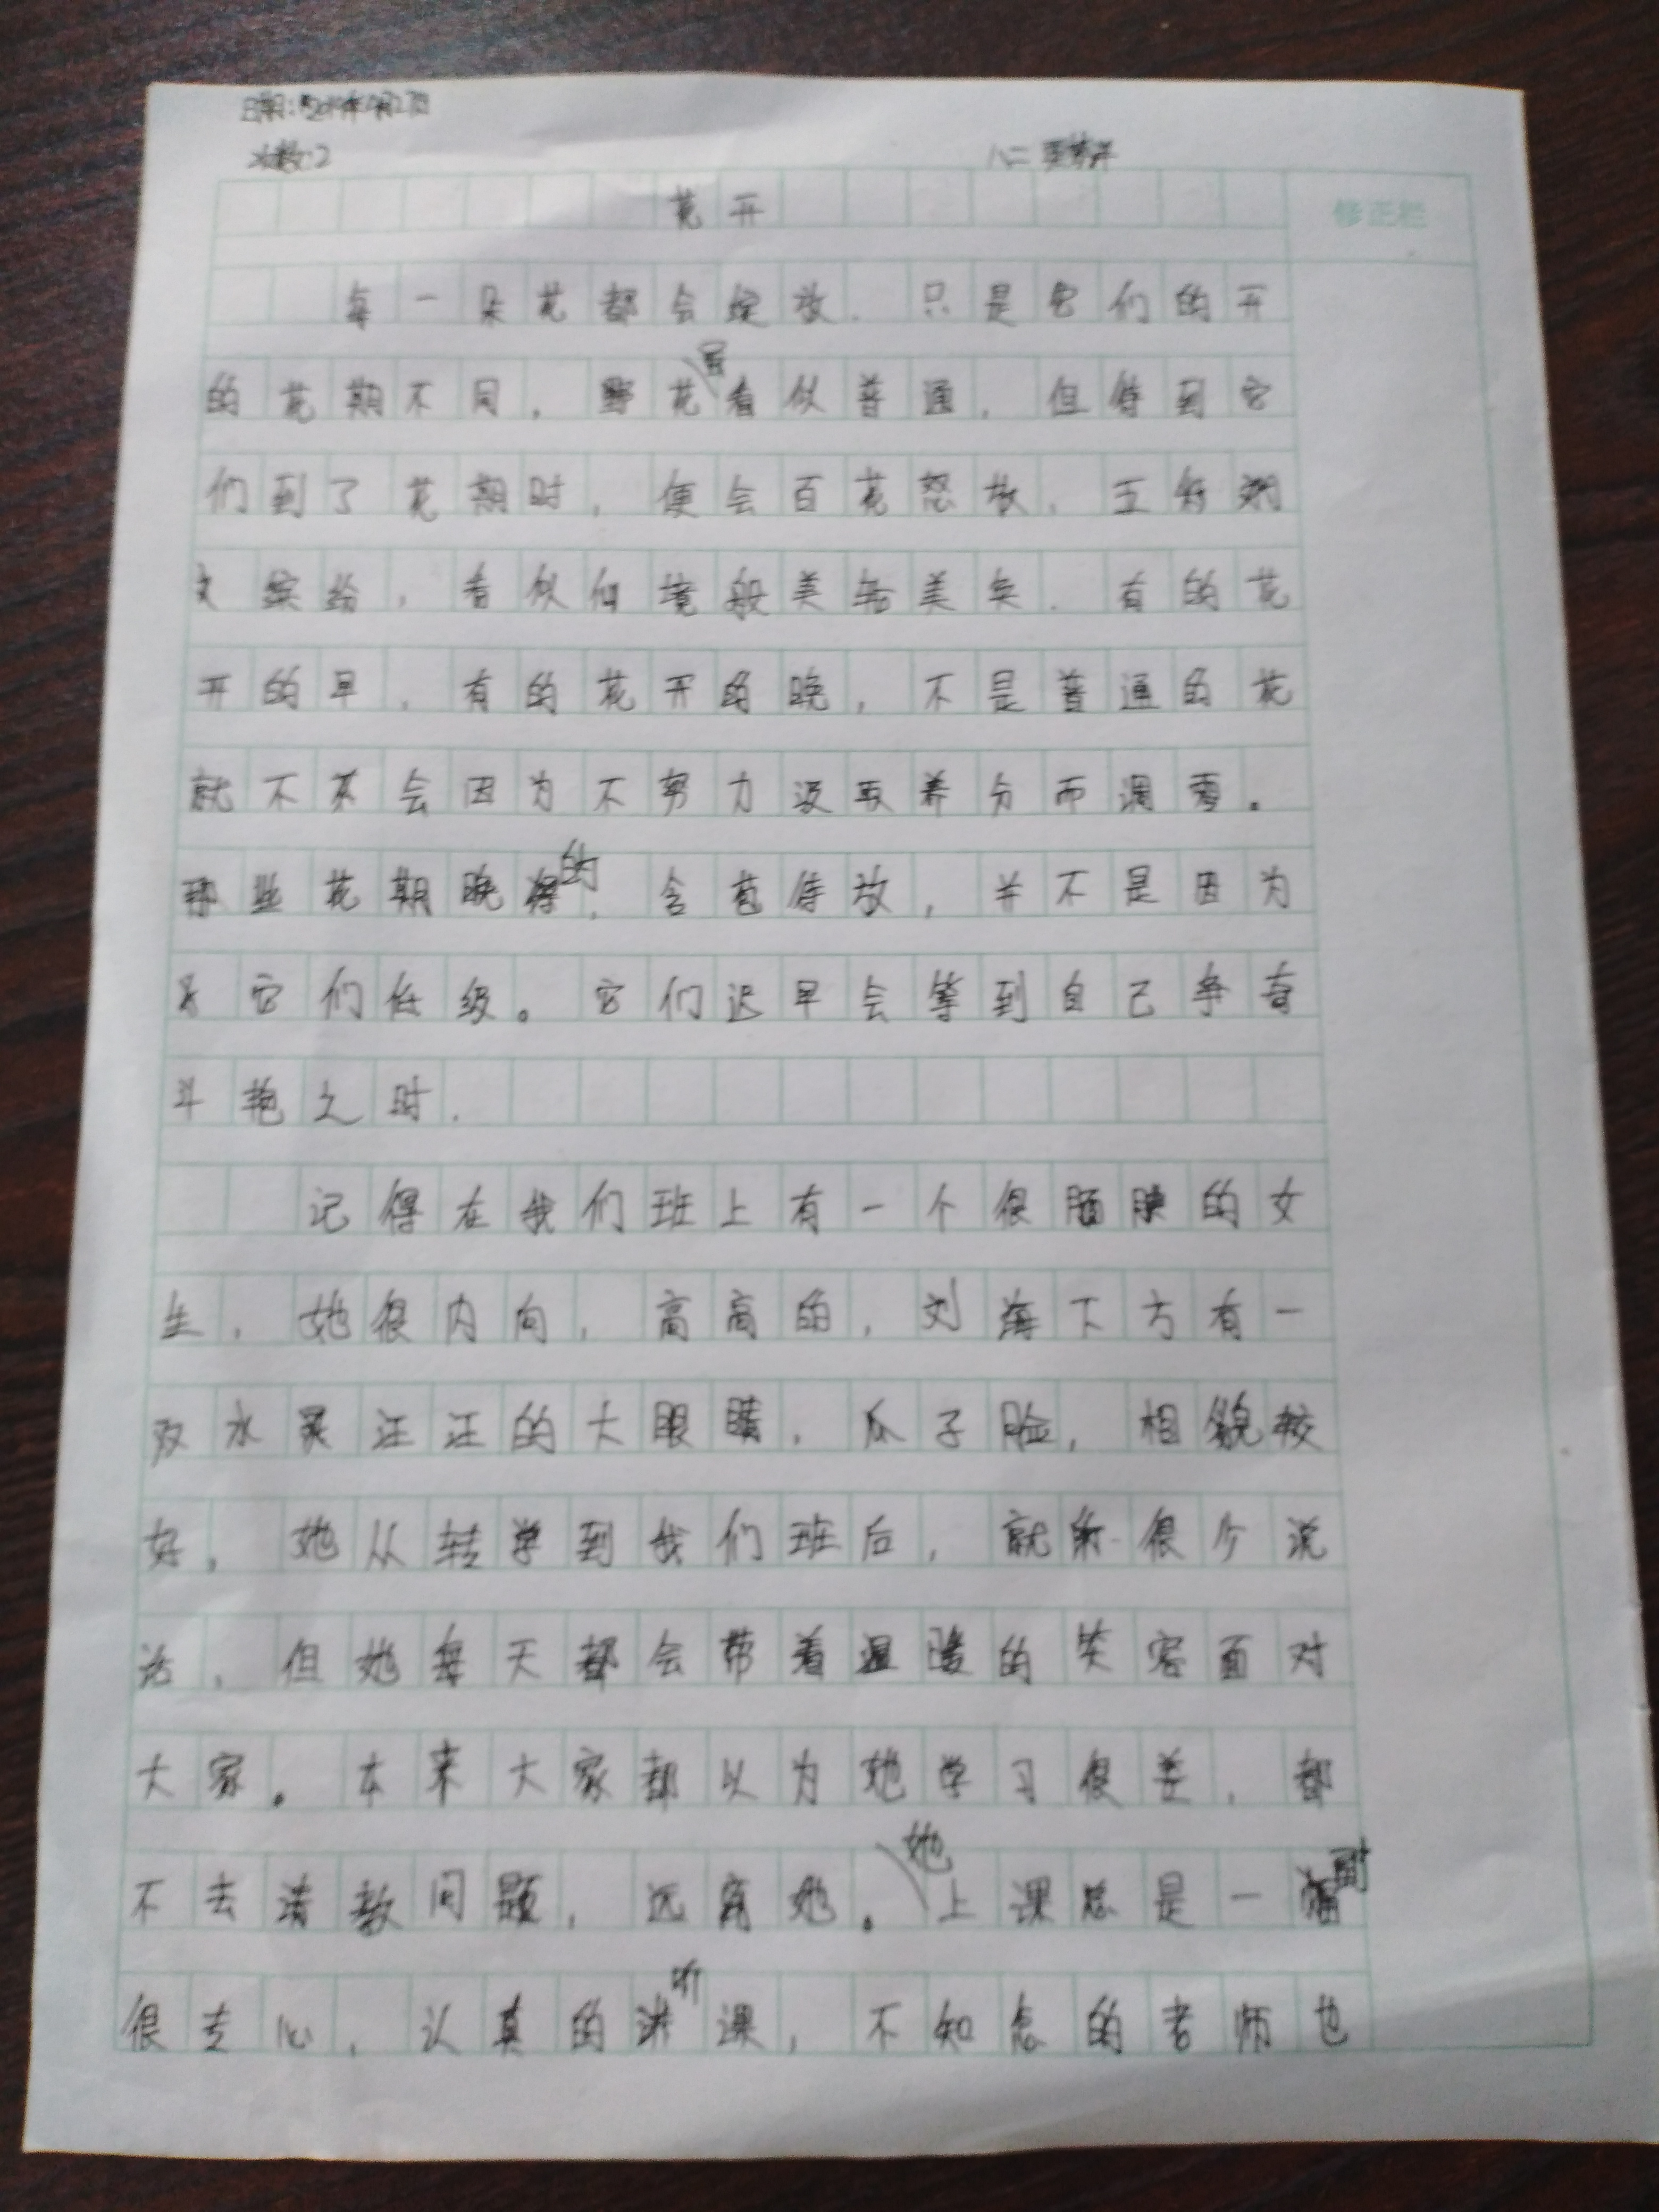 次数:2
八二
花开
修正栏
每一朵花都会绽放.只是它们的开
的花期不同,野花虽看似普通,但待到它
们到了花期时,便会百花怒放,五彩
缤纷,看似仙境般美轮美奂.有的花
开的早,有的花开的晚,不是普通的花
就不会因为不努力汲取养分而凋零。
那些花期晚的,含苞待放,并不是因为
它们低级。它们迟早会等到自己争奇
斗艳之时.
记得在我们班上有一个很腼腆的女
生,她很内向,高高的,刘海下方有一
双水灵汪汪的大眼睛,瓜子脸,相貌较
好,她从转学到我们班后,就很少说
话,但她每天都会带着温暖的笑容面对
大家。本来大家都以为她学习很差,都
不去请教问题,远离她。她上课总是一副
很专心,认真的听课,不知怎的老师也